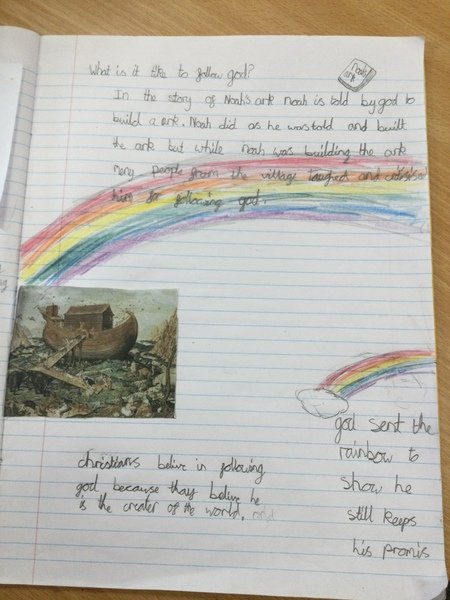 What is it like to follow god?
Noah
ark
In the story of Noah's ark noah is told by god to
build a ark. Noah did as he was told and built
the ark but while noah was building the ark
meny people from the village laughed and
him for following god.
christians belive in following
god because thay belive he
is the creater of the world. and
god sent the
rainbow to
show he
still keeps
his promis